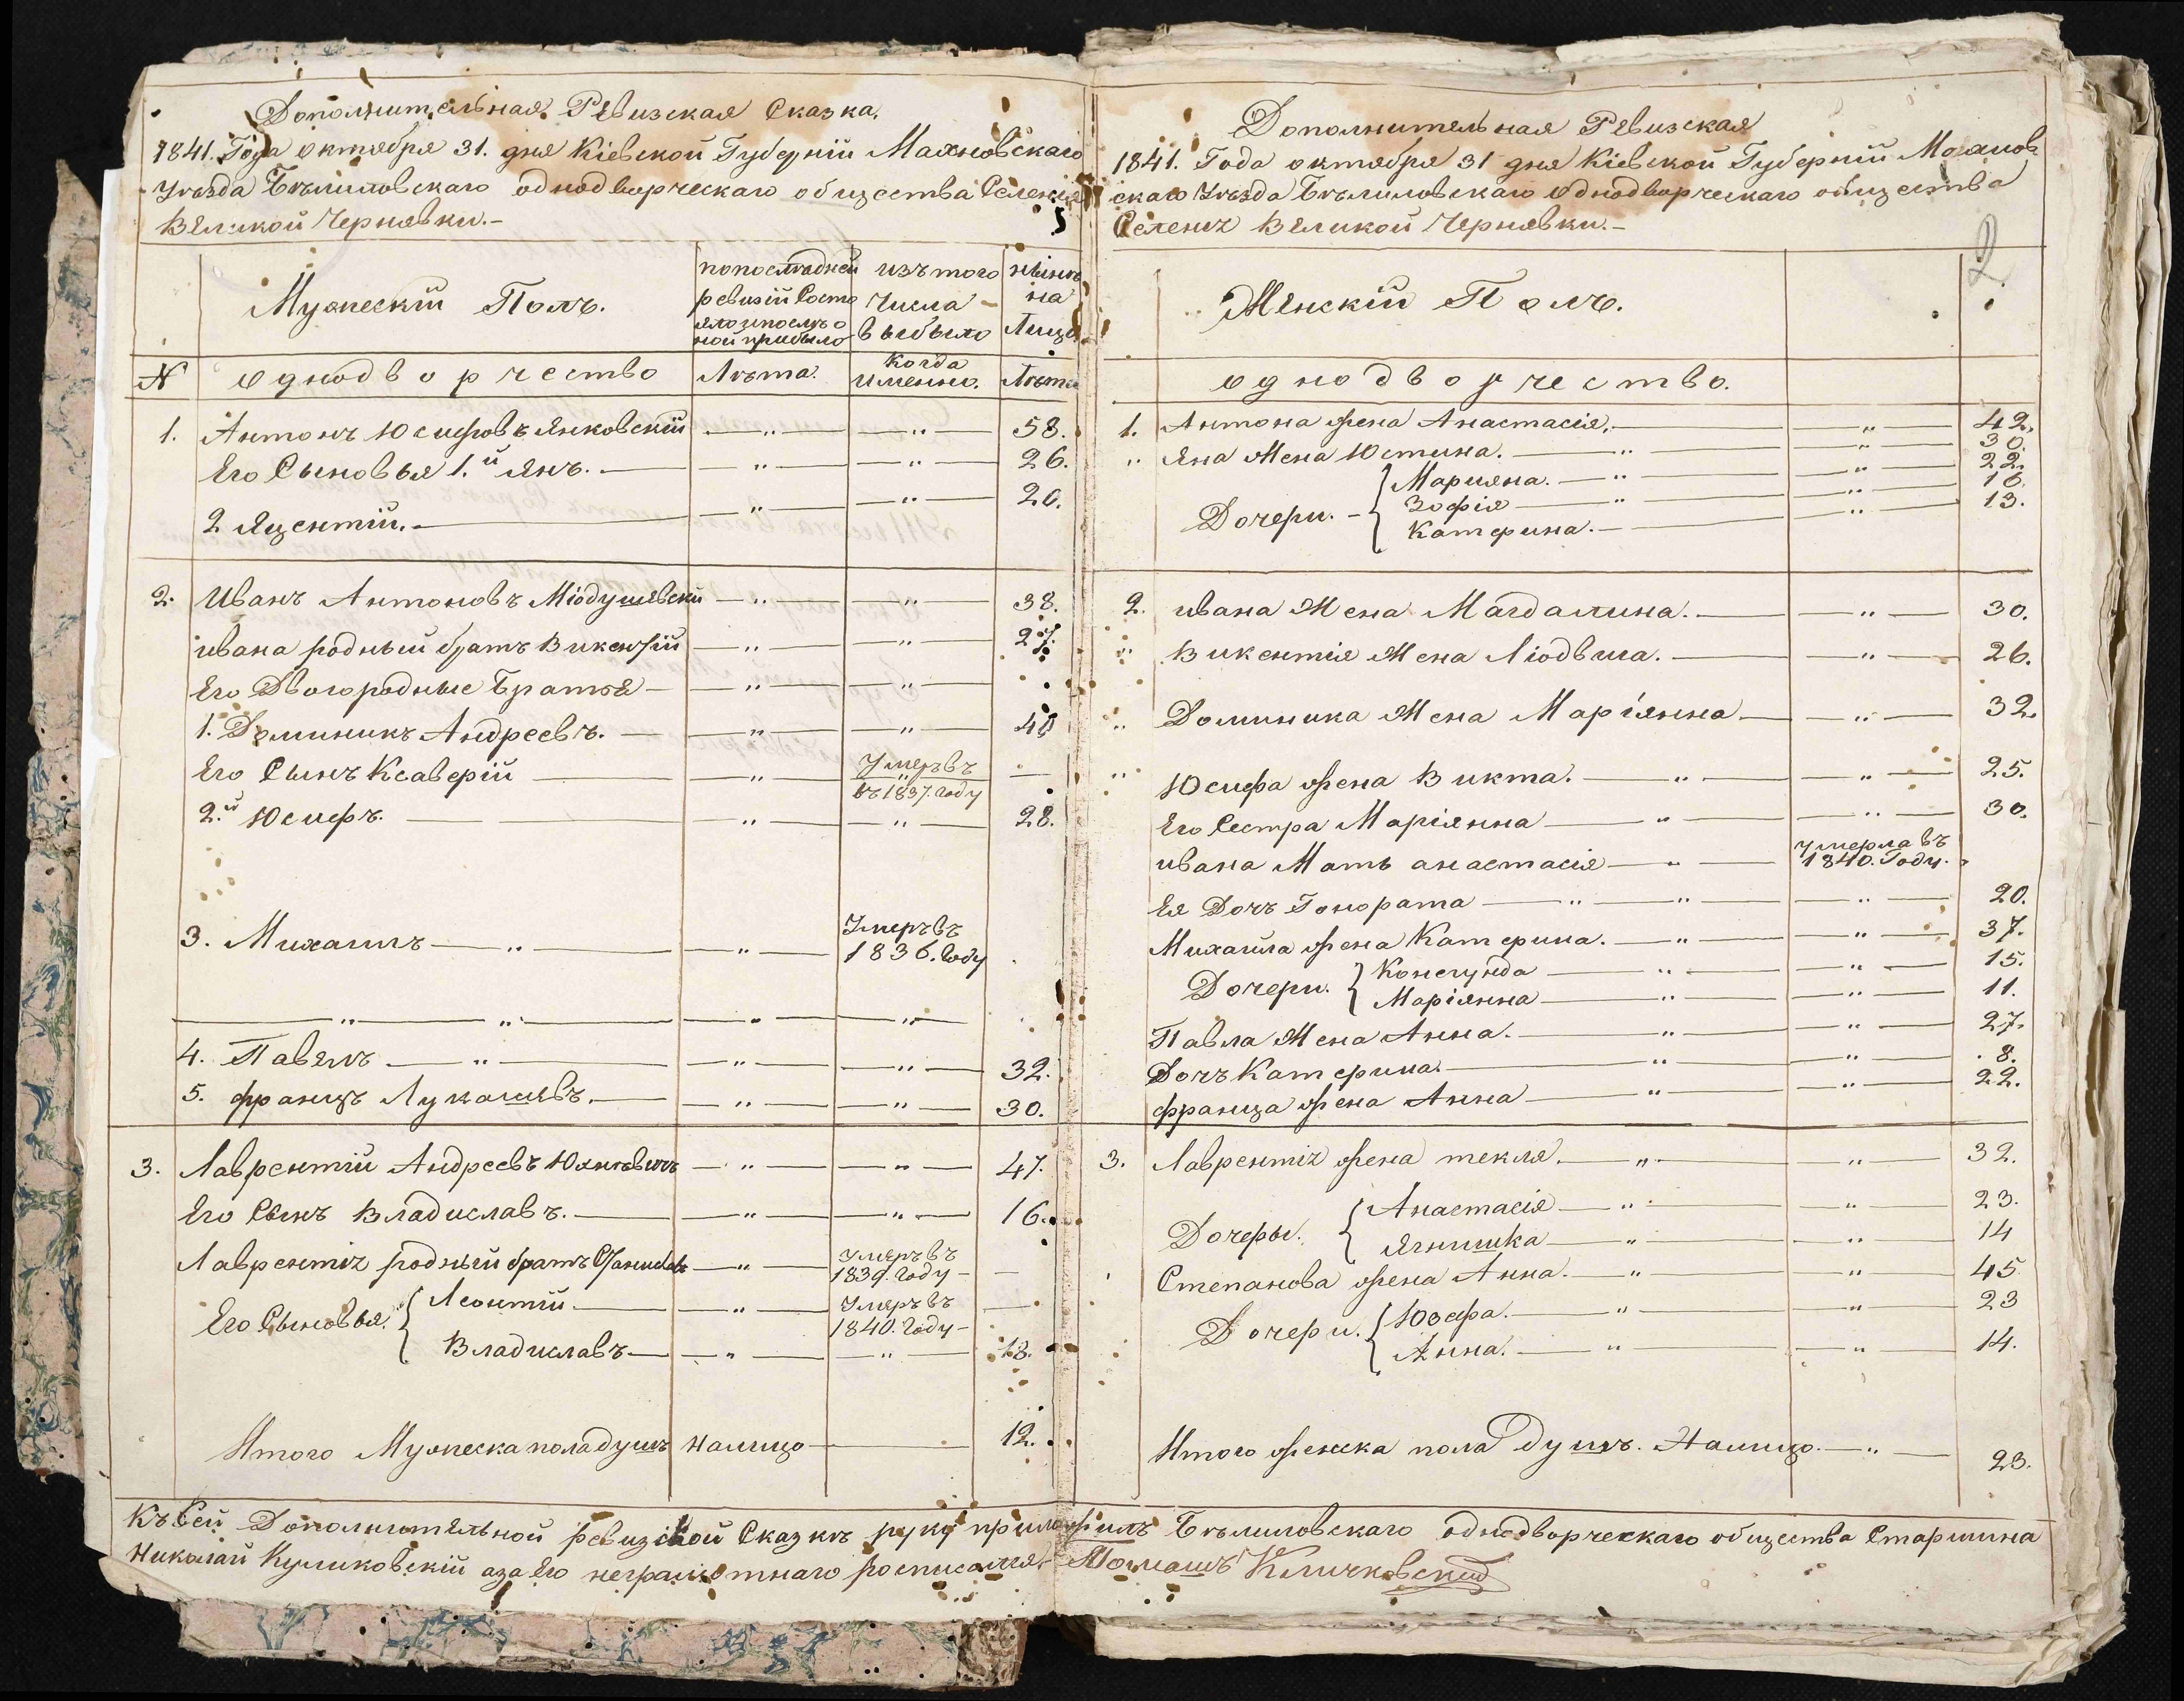 Дополнительная Ревизская Сказка.
1841. Года октября 31. дня Кіевской Губерніи Махновскаго
Уезда Бѣлиловскаго однодворческаго общества Селенія
Великой Чернявки.-
Мужескій Полъ.
по последней ревизіи состояло и после оной прибыло
изъ того числа выбыло
ныне на лицо
N однодворчество Лѣта. Когда именно. Лѣта
1. Антонъ Юсифовъ Янковскій — " — — " — 58.
Его Сыновья 1.й Янъ. — " — — " — 26.
2 Яцентій. — " — — " — 20.
2. Иванъ Антоновъ Міодушевскій — " — — " — 38.
ивана родный братъ Викентій — " — — " — 27.
Его Двогородные Братья — " — — " —
1. Доминикъ Андреевъ. — " — — " — 40
Его Сынъ Ксаверій — " — Умеръ въ
въ 1837. Году —
2.й Юсифъ. — " — — " — 28.
3. Михаилъ — " — — " — Умеръ въ
1836. Году
— " — " — — " — — " —
4. Павелъ — " — — " — — " — 32.
5. францъ Лукашевъ. — " — — " — 30.
3. Лаврентій Андреевъ Юхновичъ — " — — " — 47.
Его Сынъ Владиславъ. — " — — " — 16.
Лаврентія родный братъ — " — Умеръ въ
1839. Году —
Его Сыновья. { Леонтій — " — Умеръ въ
1840. Году —
Владиславъ — " — — " — 13.
Итого Мужеска пола душъ налицо — 12.
Дополнительная Ревизская
1841. Года октября 31 дня Кіевской Губерніи Махнов
скаго Уезда Бѣлиловскаго однодворческаго общества
Селенія Великой Чернявки.-
2
Женскій Полъ.
однодворчество.
1. Антона жена Анастасія. — " — 42.
" Яна Жена Юстина. — " — — " — 30.
Дочери. - { Марияна. — " — — " — 22.
Зофія — " — — " — 16.
Катерина. — " — 13.
2. ивана Жена Магдалина. — " — 30.
" Викентія Жена Людвига. — " — 26.
" Доминика Жена Маріянна — " — 32.
" Юсифа жена Викта. — " — — " — 25.
Его Сестра Маріянна — " — — " — 30.
ивана Мать анастасія — " — умерла въ
1840. Году.
Ея Дочъ Гонората — " — " — — " — 20.
Михаила жена Катерина. — " — — " — 37.
Дочери. { Конегунда — " — — " — 15.
Маріянна — " — — " — 11.
Павла Жена Анна. — " — — " — 27.
Дочъ Катерина. — " — — " — 8.
франца жена Анна — " — — " — 22.
3. Лаврентія жена текля. — " — — " — 32.
Дочеры. { Анастасія — " — — " — 23.
Ягнишка — " — — " — 14
Степанова жена Анна. — " — — " — 45
Дочери. { Юзефа. — " — — " — 23
Анна. — " — — " — 14.
Итого женска пола Душъ. Налицо. — " — 23.
Къ Сей Дополнительной ревизской Сказкѣ руку приложилъ Бѣлиловскаго однодворческаго общества Старшина
Николай Куликовскій а за Его неграмотнаго росписался. Томашъ Кличковскій